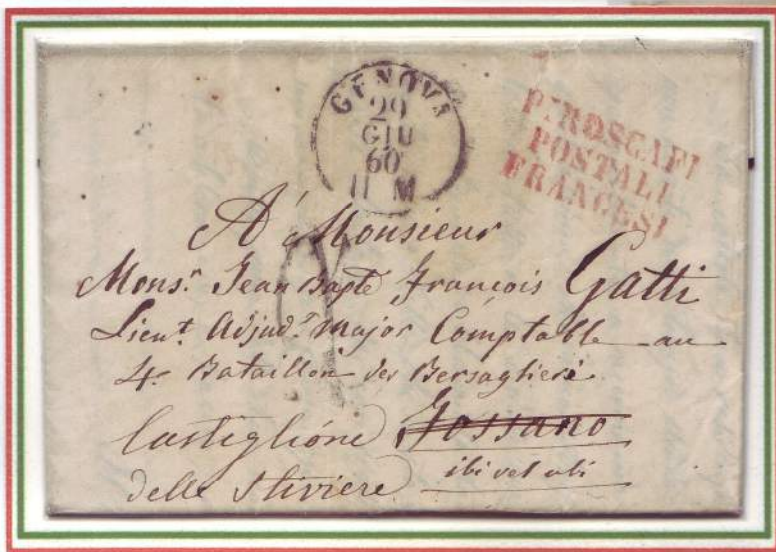 GENOVA
29
GIU
60
11 M
PIROSCAFI
POSTALI
FRANCESI
A Monsieur
Monsr. Jean Bapte François Gatti
Lieut. Adjudt. Major Comptable au
4e Bataillon des Bersaglieri
Castiglione Fossano
delle Stiviere ibi vel ubi